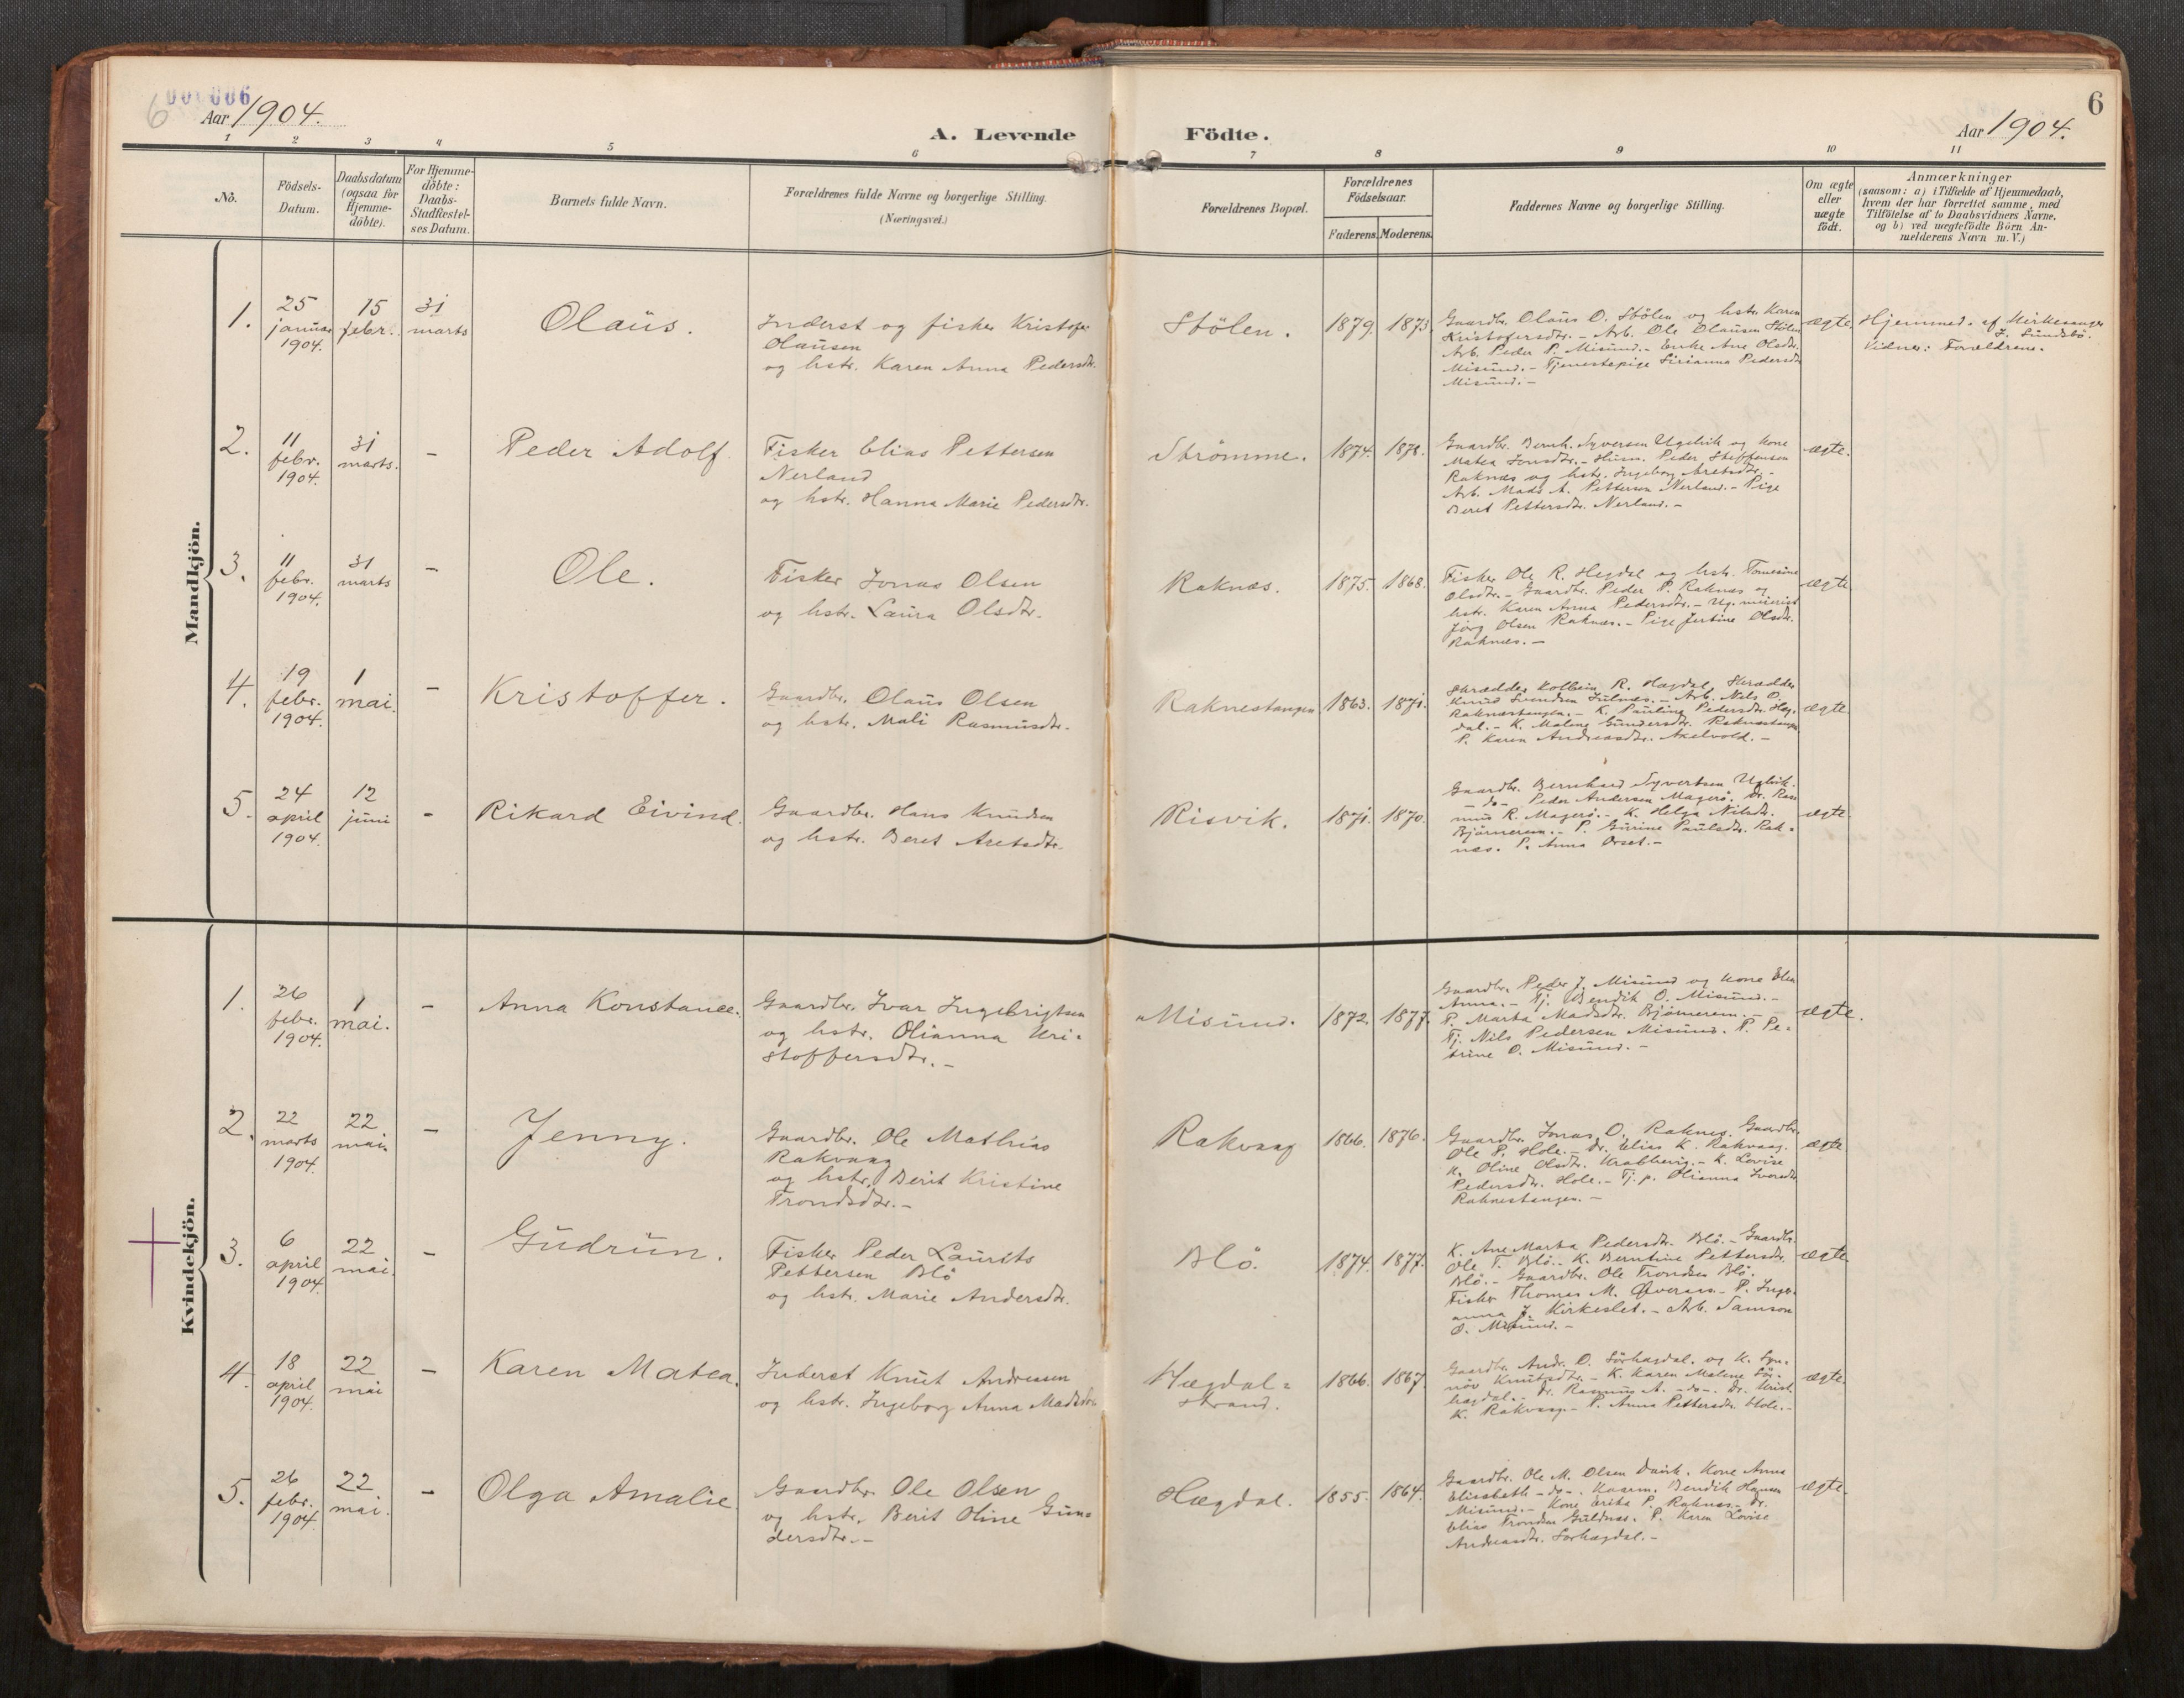 6 000006
Aar 1904.
A. Levende Födte.
6
Aar 1904.
1 2 3 4 5 6 7 8 9 10 11
No.
Födsels-
Datum.
Daabsdatum
(ogsaa for
Hjemme-
döbte).
For Hjemme-
döbte:
Daabs-
Stadfæstel-
ses Datum.
Barnets fulde Navn.
Forældrenes fulde Navne og borgerlige Stilling.
(Næringsvei.)
Forældrenes Bopæl.
Forældrenes
Födselsaar.
Faderens. Moderens.
Faddernes Navne og borgerlige Stilling.
Om ægte
eller
uægte
født.
Anmærkninger
(saasom: a) i Tilfælde af Hjemmedaab,
hvem der har forrettet samme, med
Tilföielse af to Daabsvidners Navne,
og b) ved uægtefödte Börn An-
melderens Navn m.V.)
Mandkjön.
1.
25
januar
1904.
15
febr.
31
marts
Olaüs.
Inderst og fisker Kristofer
Olaüsen
og hstr. Karen Anna Pedersdtr.
Stölen.
1879. 1873.
Gaardbr. Olaüs O. Stölen og hstr. Karen
Kristofersdtr. - Arb. Ole Olaüsen Stölen
Arb. Peder P. Misünd. - Enke Ane Olsdtr.
Misünd. - Tjenestepige Sirianna Pedersdtr
Misünd. -
ægte.
Hjemmed. af Kirkesanger
J. Sundsbö.
Vidner: Forældrene.
2.
11
febr.
1904.
31
marts.
-
Peder Adolf.
Fisker Elias Pettersen
Nerland
og hstr. Hanna Marie Pedersdtr.
Strömme.
1874. 1878.
Gaardbr. Bernh. Syversen Ugelvik og kone
Matea Jonsdtr. - Husm. Peder Steffensen
Raknæs og hstr. Ingeborg Aretsdtr. -
Arb. Mads A. Pettersen Nerland. - Pige
Beret Pettersdtr. Nerland. -
ægte.
3.
11
febr.
1904.
31
marts
-
Ole.
Fisker Jonas Olsen
og hstr. Laüra Olsdtr.
Raknæs.
1875. 1868.
Fisker Ole R. Hegdal og hstr. Tomesine
Olsdtr. - Gaardbr. Peder P. Raknæs og
hstr. Karen Anna Pedersdtr. - Ug.
Jörg Olsen Raknæs. - Pige Jertine Olsdtr.
Raknæs. -
ægte
4.
19
febr.
1904.
1
mai.
-
Kristoffer.
Gaardbr. Olaüs Olsen
og hstr. Mali Rasmüsdtr.
Raknestangen
1863. 1871.
Skrædder Kolbein R. Hægdal, Skrædder
Knüd Svendsen Jülnæs. - Arb. Nils O.
Raknæstangen. - K. Pauline Pedersdtr. Hæg-
dal. - K. Malene Gündersdtr. Raknæstangen
P. Karen Andreasdtr. Akselvold. -
ægte
5.
24
april
1904.
12
jüni
-
Rikard Eivind.
Gaardbr. Hans Knüdsen
og hstr. Beret Aretsdtr.
Risvik.
1871. 1870.
Gaardbr. Bernhard Syvertsen Ugelvik.
- do - Peder Andersen Magerö. Dr. Ras
müs R. Magerö. - K. Helga Nilsdtr.
Björnerem. - P. Gürine Paülsdtr. Rak-
næs. P. Anna Orset. -
ægte.
Kvindekjön.
1.
26
febr.
1904.
1
mai.
-
Anna Konstance.
Gaardbr. Ivar Ingebrigtsen
og hstr. Olianna Kri-
stoffersdtr. -
Misünd.
1872. 1877.
Gaardbr. Peder J. Misünd og kone Elen
Anna. - Tj. Bendik O. Misünd. -
P. Marta Madsdtr. Björnerem. -
Tj. Nils Pedersen Misünd. P. Pe-
trine O. Misünd. -
ægte.
2.
22
marts
1904.
22
mai.
-
Jenny.
Gaardbr. Ole Mathias
Rakvaag
og hstr. Berit Kristine
Trondsdtr. -
Rakvaag
1866. 1876.
Gaardbr. Jonas O. Raknes. Gaardbr.
Ole P. Hole. - Dr. Elias K. Rakvaag.
K. Oline Olsdtr. Krabbevig. - K. Lovise
Pedersdtr. Hole. - Tj. p. Olianna Iversdtr
Raknestangen. -
ægte
3.
6
april
1904
22
mai.
-
Güdrün.
Fisker Peder Laürits
Pettersen Blö
og hstr. Marie Andersdtr.
Blö.
1874. 1877.
K. Ane Marta Pedersdtr. Blö. - Gaardbr.
Ole T. Blö. - K. Berntine Pettersdtr.
Blö. - Gaardbr. Ole Trondsen Blö.
Fisker Thomas M. Överaas. - P. Inger
anna J. Kirkeslet. - Arb. Samson
O. Misünd. -
ægte.
4.
18
april
1904.
22
mai
-
Karen Matea.
Inderst Knüt Andreasen
og hstr. Ingeborg Anna Madsdtr.
Hægdal-
strand.
1866. 1867.
Gaardbr. Andr. O. Sörhægdal. og K. Syn-
növ Knütsdtr. - K. Karen Malene Sör-
hægdal. - Dr. Rasmüs A. - do -. Dr. Krist.
K. Rakvaag. - P. Anna Pettersdtr. Hole. -
ægte.
5.
26
febr.
1904.
22
mai.
-
Olga Amalie.
Gaardbr. Ole Olsen
og hstr. Berit Oline Gün-
dersdtr. -
Hægdal.
1855. 1864.
Gaardbr. Ole M. Olsen Kone Anna
Elisabeth - do -. Kaarm. Bendik Hansen
Misünd. - Kone Erika P. Raknæs. - Dr.
Elias Trondsen Güldnæs. P. Karen Lovise
Andreasdtr. Sörhægdal. -
ægte.